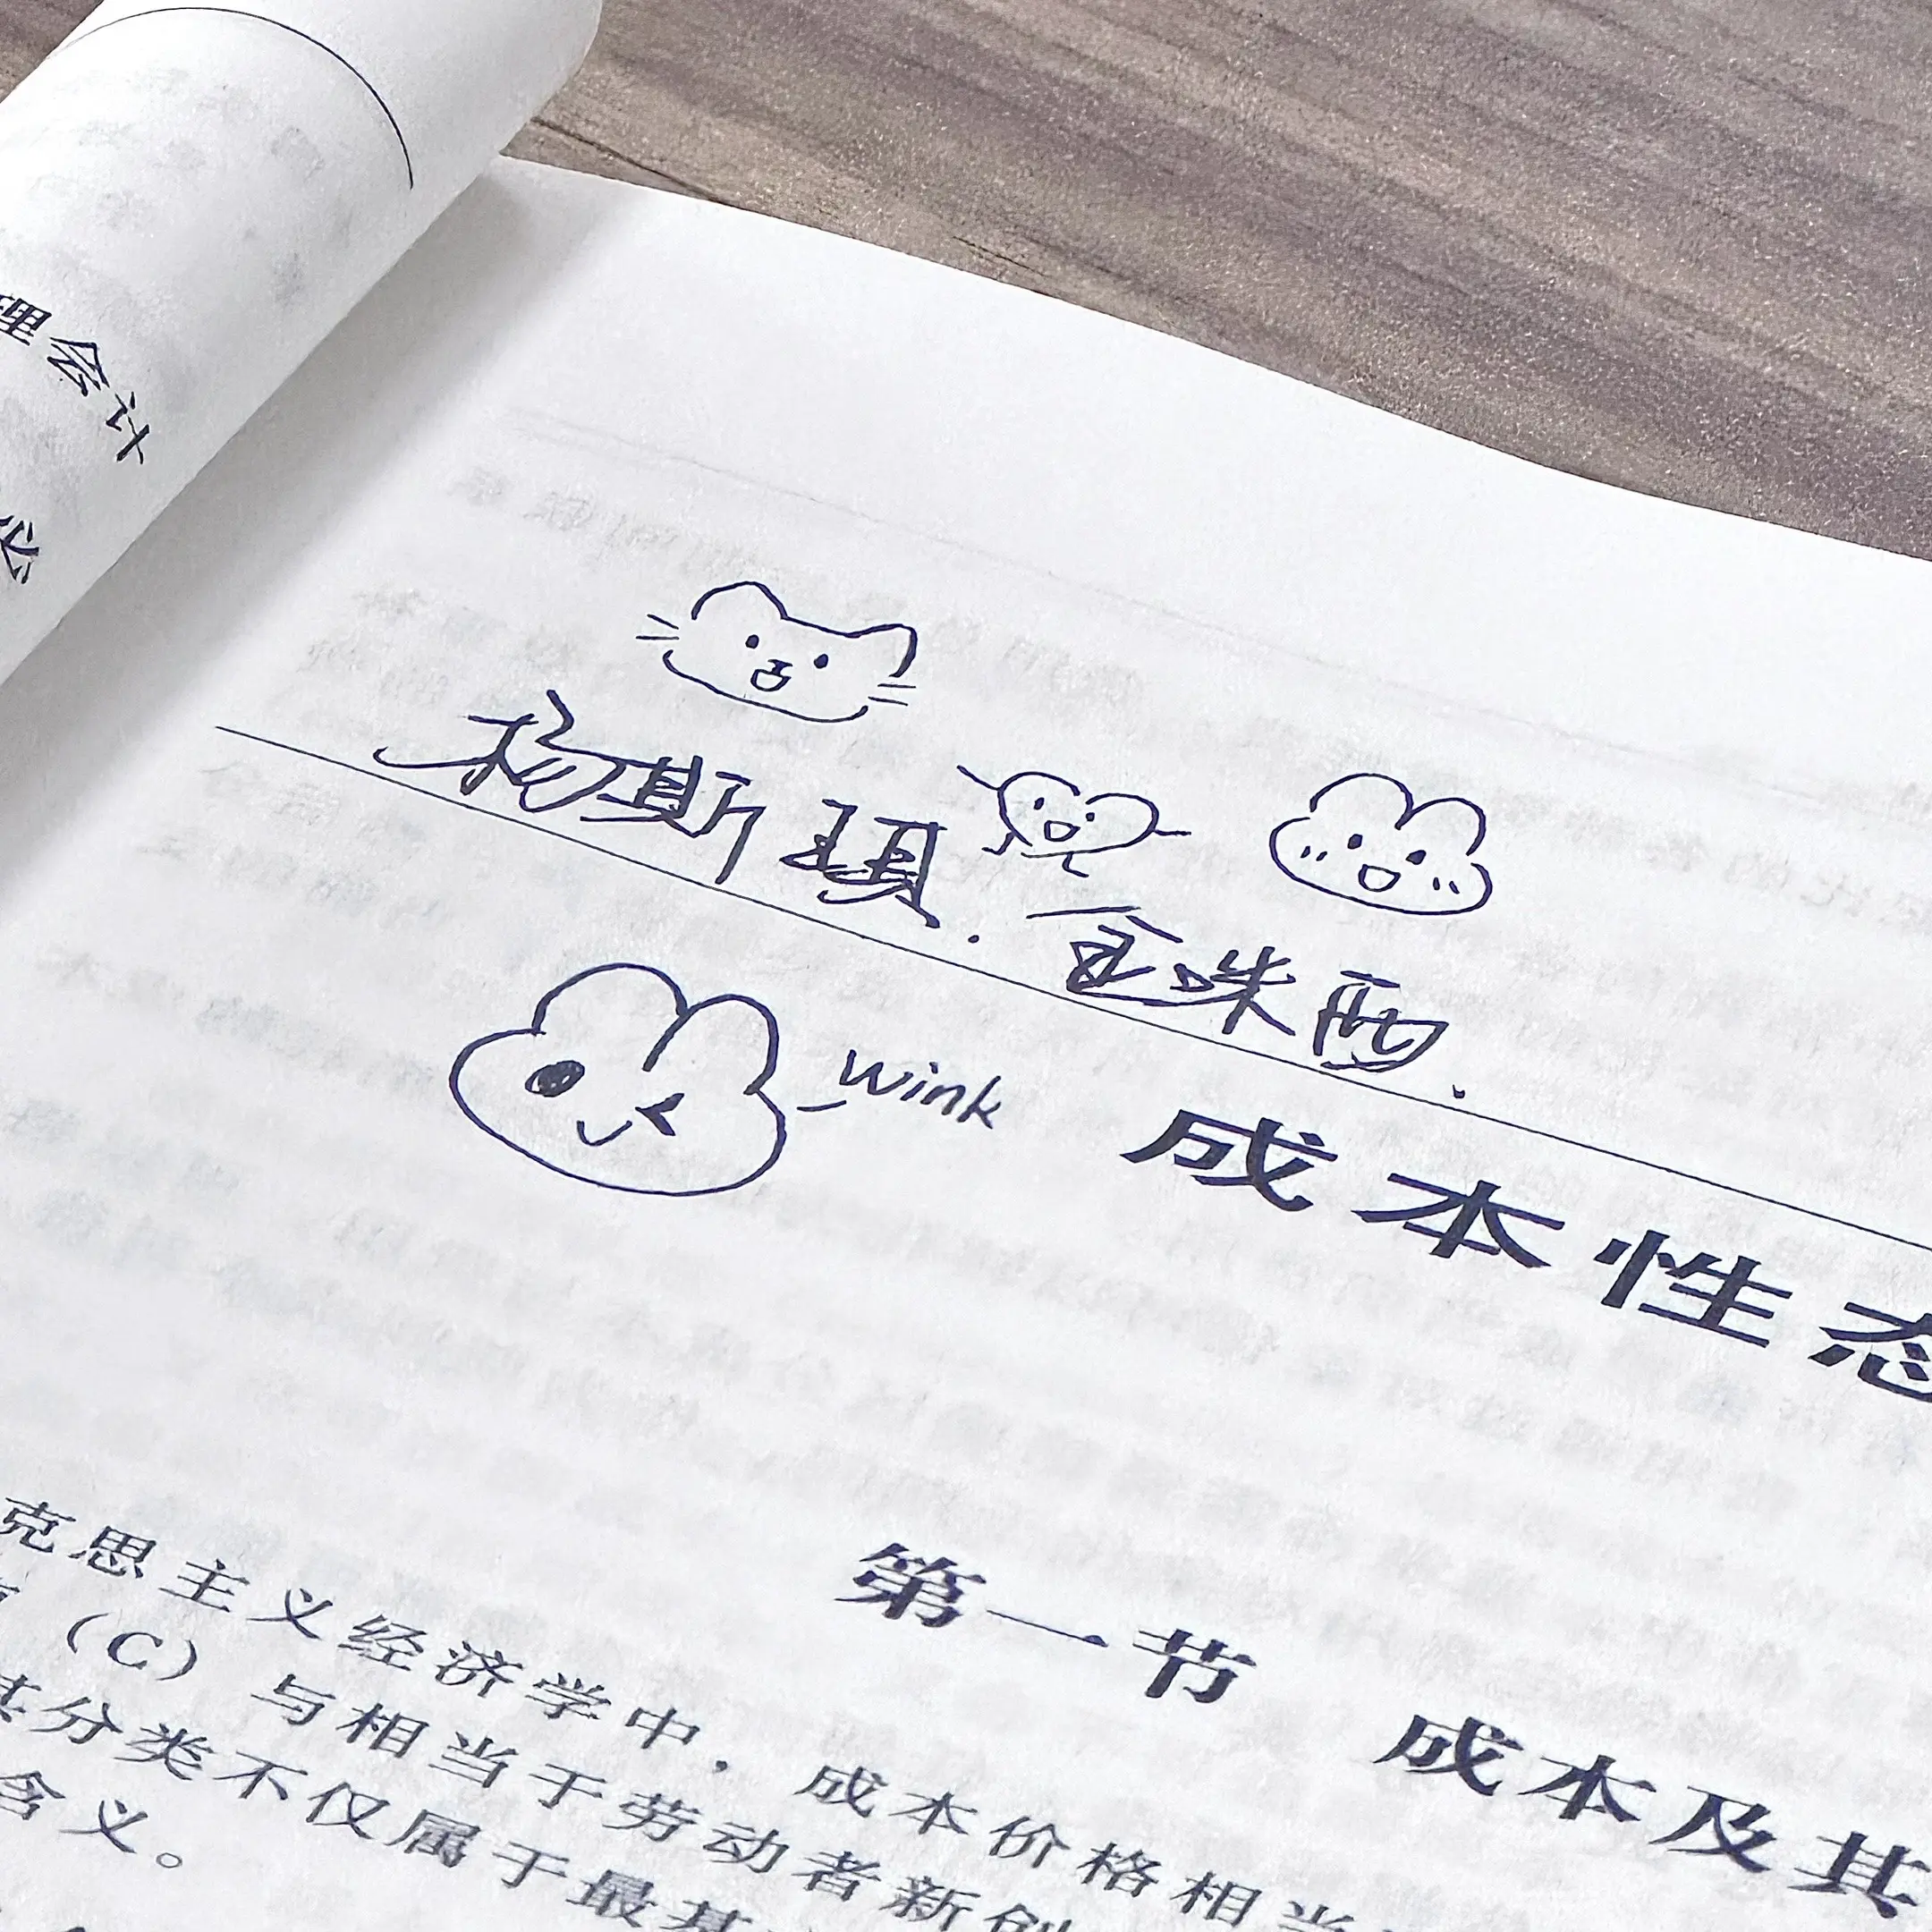 理会计
必
杨斯琪.
金咪西.
wink
成本性态
第一节 成本及其
克思主义经济学中，成本价格相当
（C）与相当于劳动者新创
其分类不仅属于最基
含义。